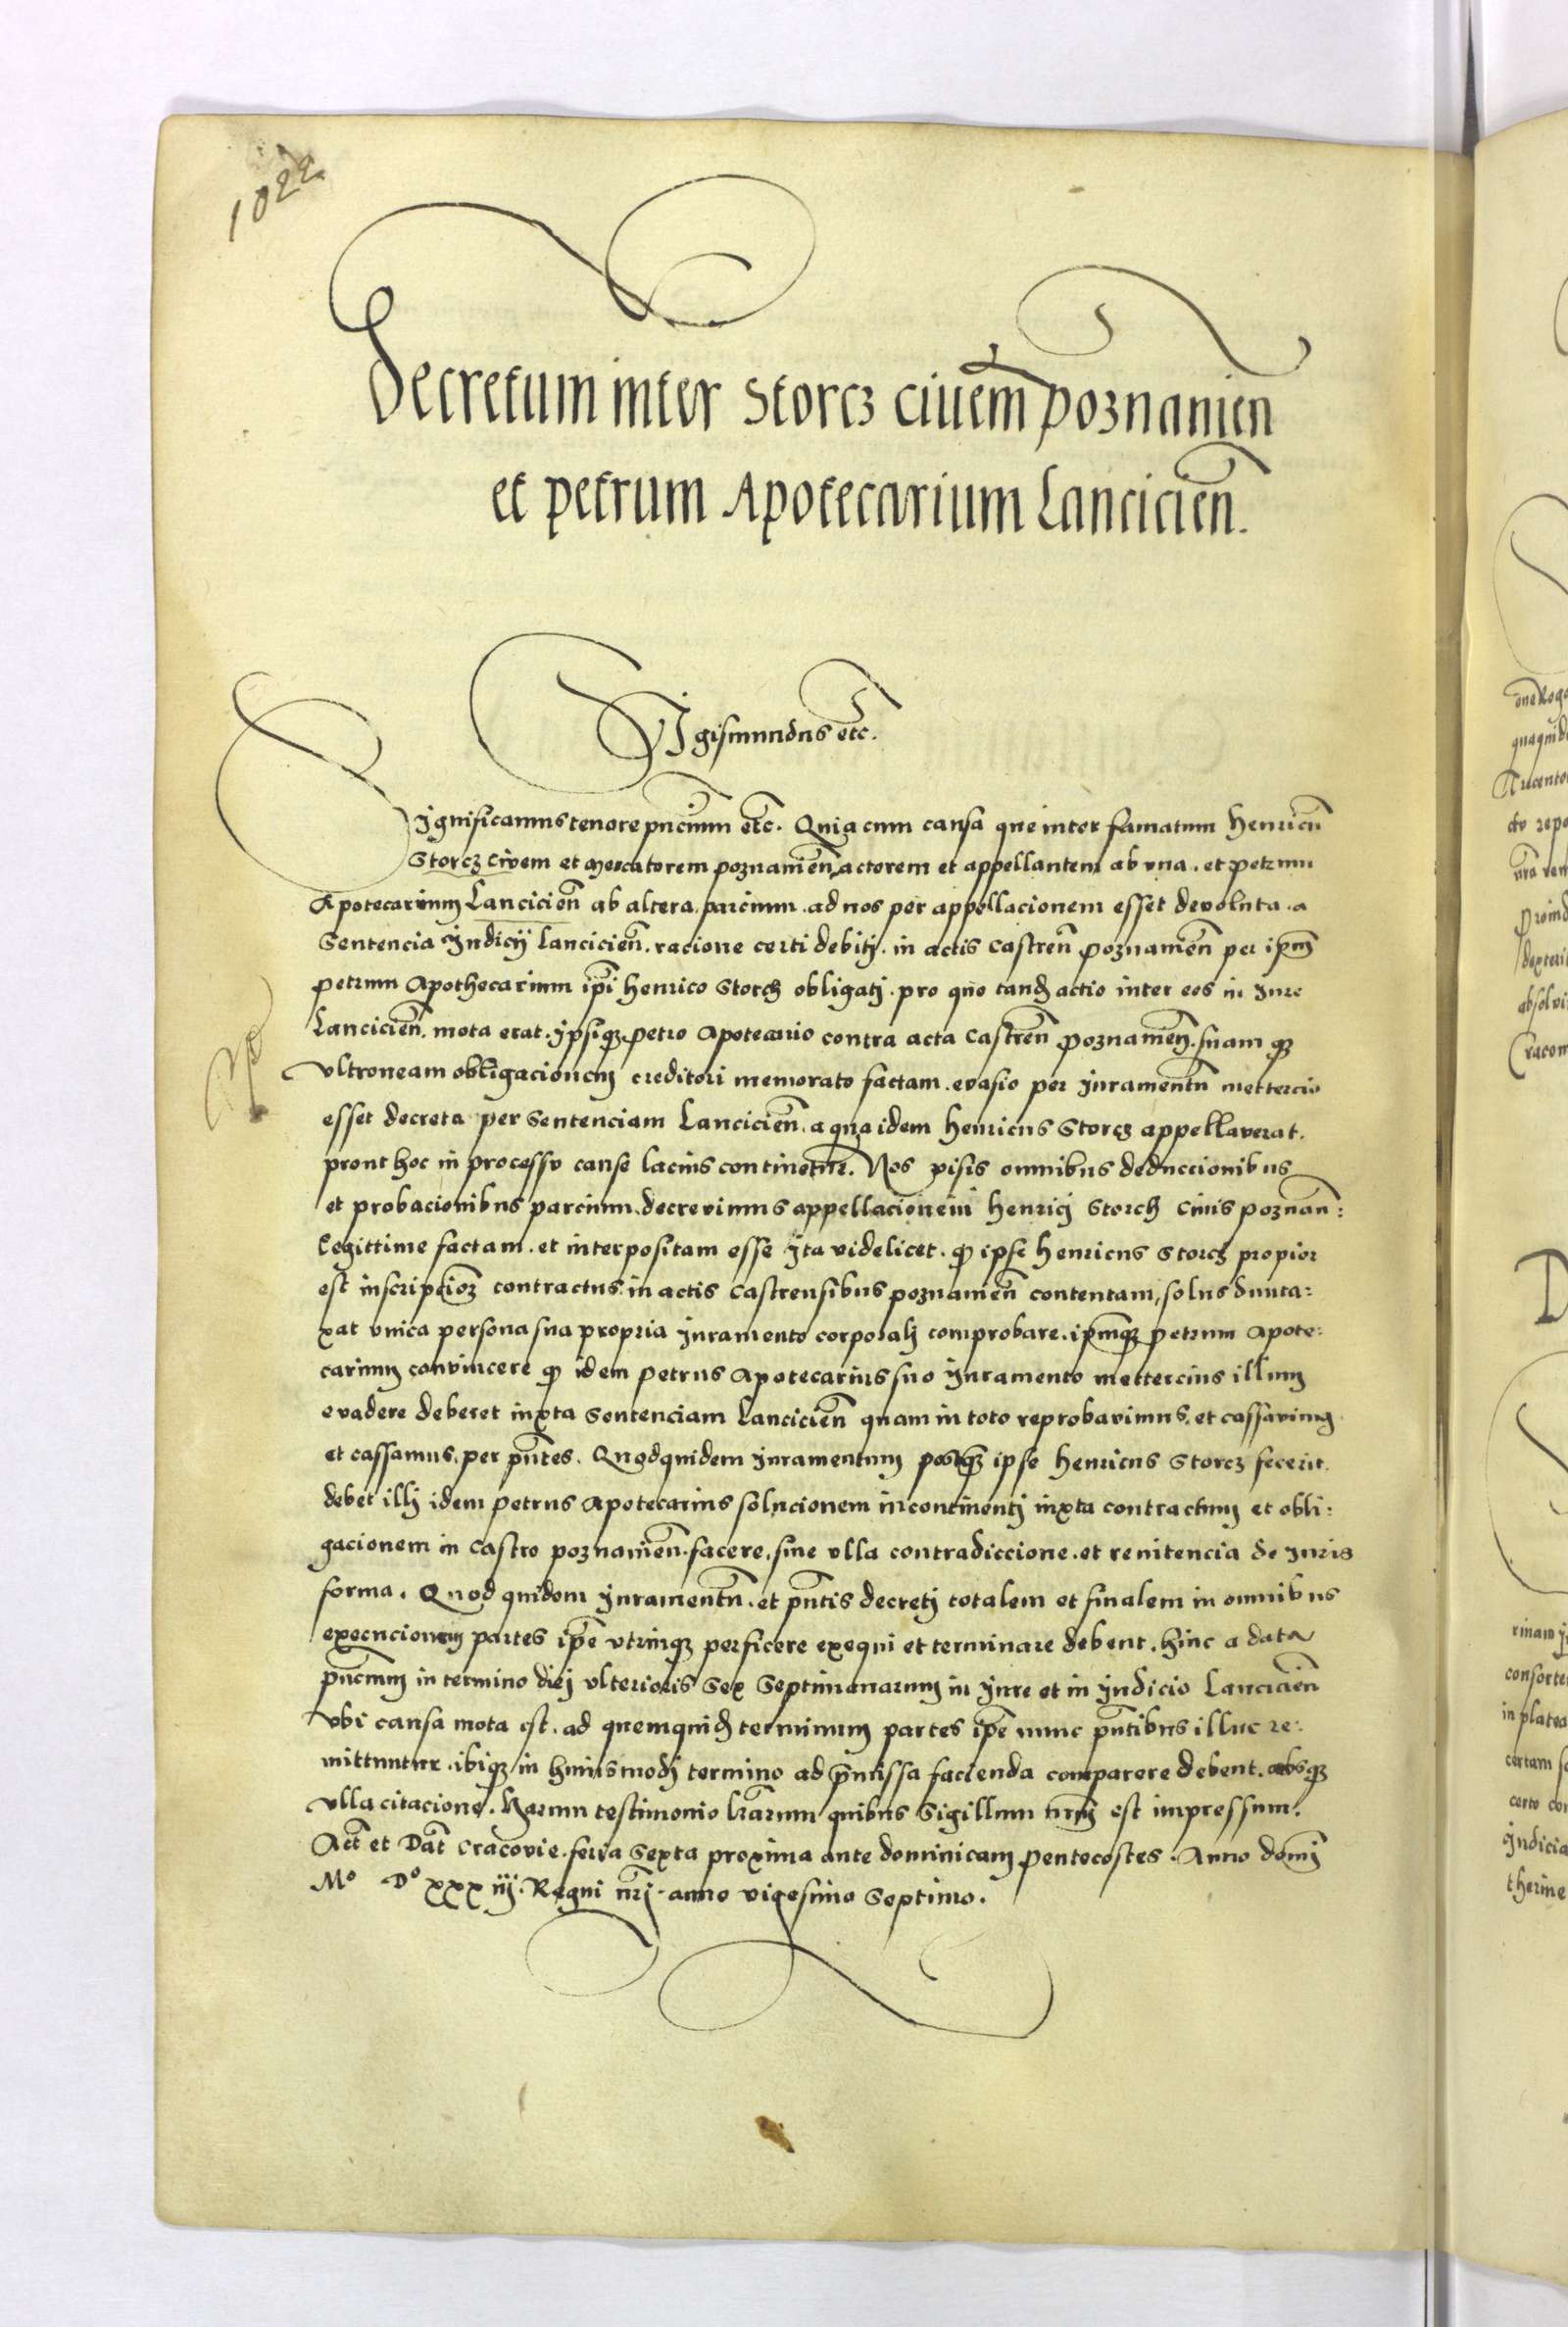 1022
Decretum inter Storcz civem poznanien̄
et petrum Apotecarium Lancicien̄.
Sigismundus etc̄.
Significamus tenore pn̄cium etc̄. Quia cum causa que inter famatum Henricū
Storcz civem et mercatorem poznanien̄ actorem et appellantem ab vna. et petrum
Apotecarium Lancicien̄ ab altera parcium. ad nos per appellacionem esset devoluta. a
Sentencia Judicij lancicien̄. racione certi debitj. in actis castren̄ poznanien̄ per ip̄m
petrum Apothecarium ip̄i Henrico Storcz obligatj. pro quo tandē actio inter eos in Jure
Lancicien̄. mota erat. ipsiqȝ petro Apotecario contra acta castren̄ poznanien̄. suam qȝ
vltroneam obligacionem creditori memorato factam. evasio per juramentū mettercio
esset decreta per sentenciam Lancicien̄. a qua idem Henricus Storcz appellaverat.
prout hoc in processu cause lacius continetur. Nos visis omnibus deduccionibus
et probacionibus parcium. decrevimus appellacionem Henricj Storcz civis poznan̄:
legittime factam. et interpositam esse Ita videlicet. qđ ipse Henricus Storcz propior
est inscripcioȝ contractus in actis castrensibus poznanien̄ contentam, solus dunta:
xat vnica persona sua propria juramento corporalj comprobare. ip̄mqȝ petrum Apote:
carium convincere qđ idem petrus Apotecarius suo juramento mettercius illum
evadere deberet iuxta sentenciam Lancicien̄ quam in toto reprobavimus. et cassavimus
et cassamus. per pn̄tes. Quodquidem juramentum postqȝ ipse Henricus Storcz fecerit.
debet illj idem petrus Apotecarius solucionem incontinentj iuxta contractum et obli:
gacionem in castro poznanien̄. facere. sine vlla contradiccione. et renitencia de juris
forma. Quod quidem juramentū. et pn̄tis decretj totalem et finalem in omnibus
execucionem partes ip̄e vtrinqȝ perficere exequi et terminare debent. hinc a data
pn̄cium in termino diej vlterioris sex septimanarum in jure et in judicio Lancicien̄
vbi causa mota est. ad quemquidē terminum partes ip̄e nunc pn̄tibus illuc re:
mittuntur. ibiqȝ in huiusmodj termino ad p̄missa facienda comparere debent. absqȝ
vlla citacione. Harum testimonio lr̄arum quibus Sigillum nr̄m est impressum.
Act̄ et Dat̄ Cracovie. feria sexta proxima ante dominicam pentecostes. Anno domi
Mº Dº xxx iiiȷ. Regni nr̄j. anno vigesimo septimo.